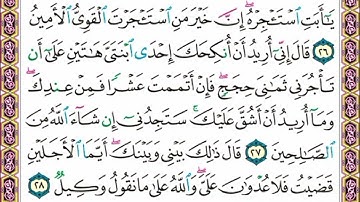 يَـٰٓأَبَتِ ٱسْتَـْٔجِرْهُ ۖ إِنَّ خَيْرَ مَنِ ٱسْتَـْٔجَرْتَ ٱلْقَوِىُّ ٱلْأَمِينُ
٢٦ قَالَ إِنِّىٓ أُرِيدُ أَنْ أُنكِحَكَ إِحْدَى ٱبْنَتَىَّ هَـٰتَيْنِ عَلَىٰٓ أَن
تَأْجُرَنِى ثَمَـٰنِىَ حِجَجٍ ۖ فَإِنْ أَتْمَمْتَ عَشْرًا فَمِنْ عِندِكَ ۖ
وَمَآ أُرِيدُ أَنْ أَشُقَّ عَلَيْكَ ۚ سَتَجِدُنِىٓ إِن شَآءَ ٱللَّهُ مِنَ
ٱلصَّـٰلِحِينَ ٢٧ قَالَ ذَٰلِكَ بَيْنِى وَبَيْنَكَ ۖ أَيَّمَا ٱلْأَجَلَيْنِ
قَضَيْتُ فَلَا عُدْوَٰنَ عَلَىَّ ۖ وَٱللَّهُ عَلَىٰ مَا نَقُولُ وَكِيلٌ ٢٨